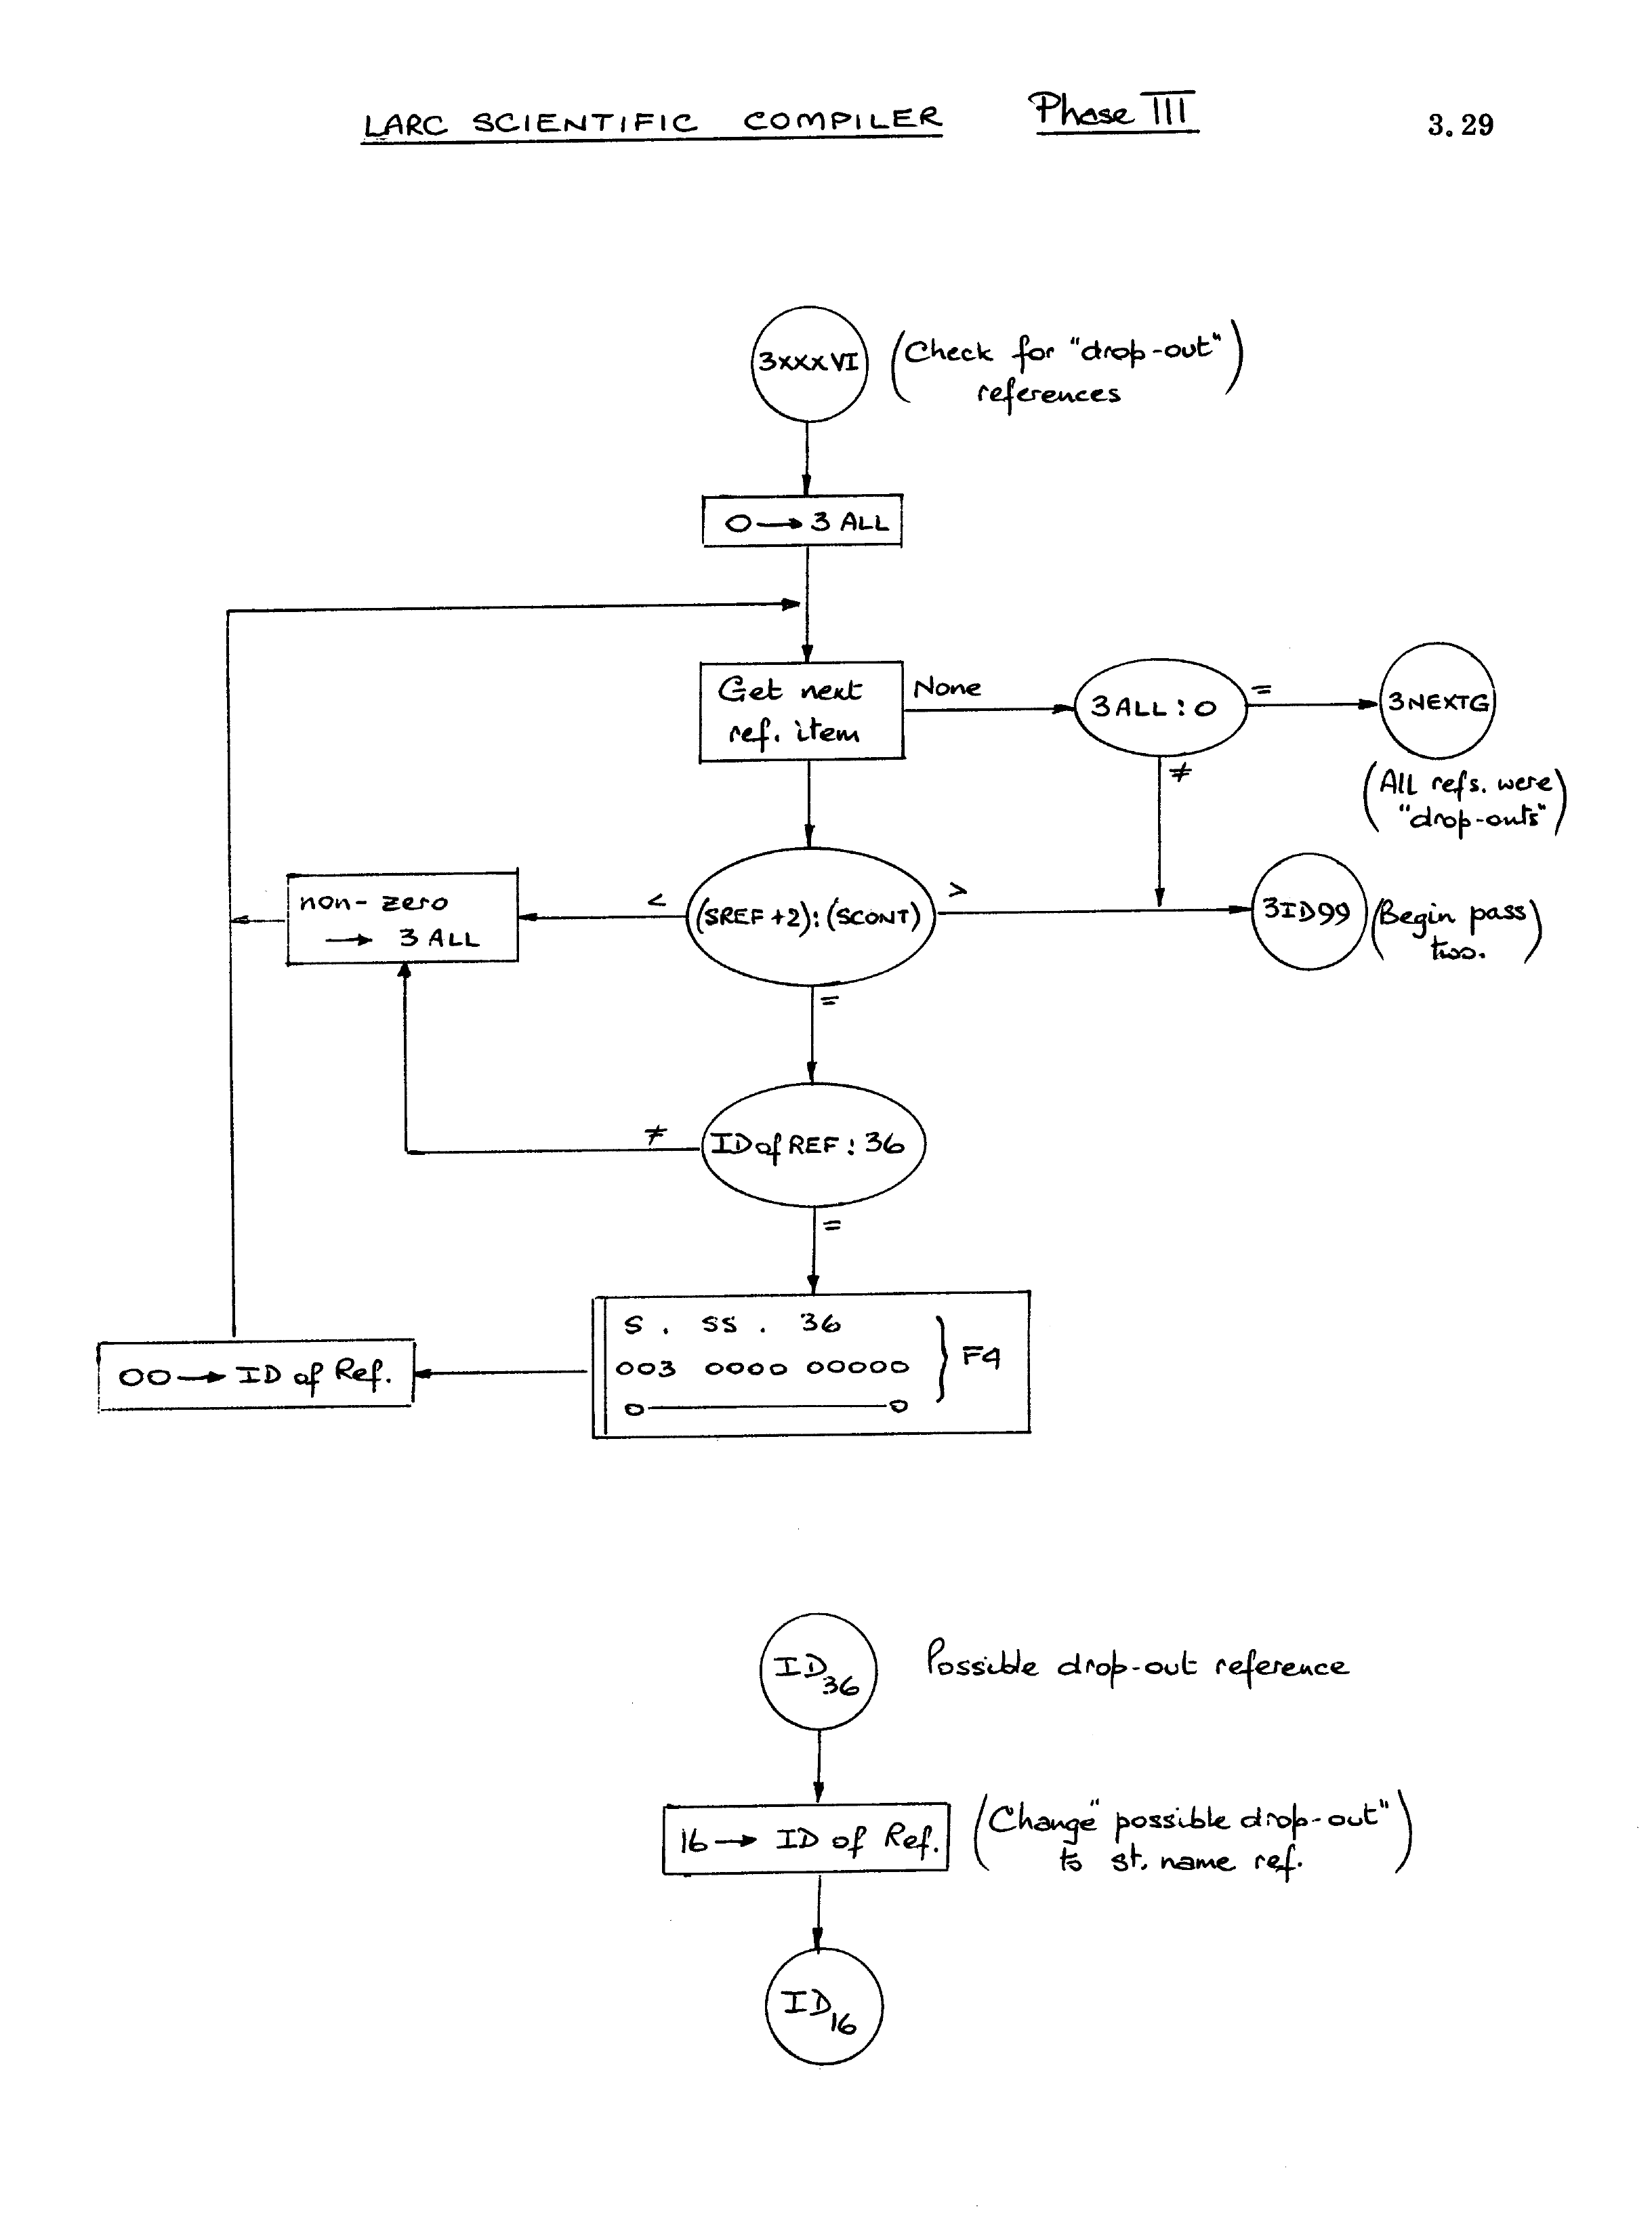 LARC SCIENTIFIC COMPILER Phase III 3.29
3XXXVI
(Check for "drop-out"
references)
0 → 3 ALL
Get next
ref. item
None
3ALL : 0
=
3NEXTG
≠
(All refs. were
"drop-outs")
non-zero
→ 3 ALL
<
(SREF+2):(SCONT)
>
3ID99
(Begin pass
two.)
=
≠
ID of REF : 36
=
S . SS . 36
003 0000 00000
0————0
} F4
00 → ID of Ref.
ID36
Possible drop-out reference
16 → ID of Ref.
(Change "possible drop-out"
to st. name ref.)
ID16